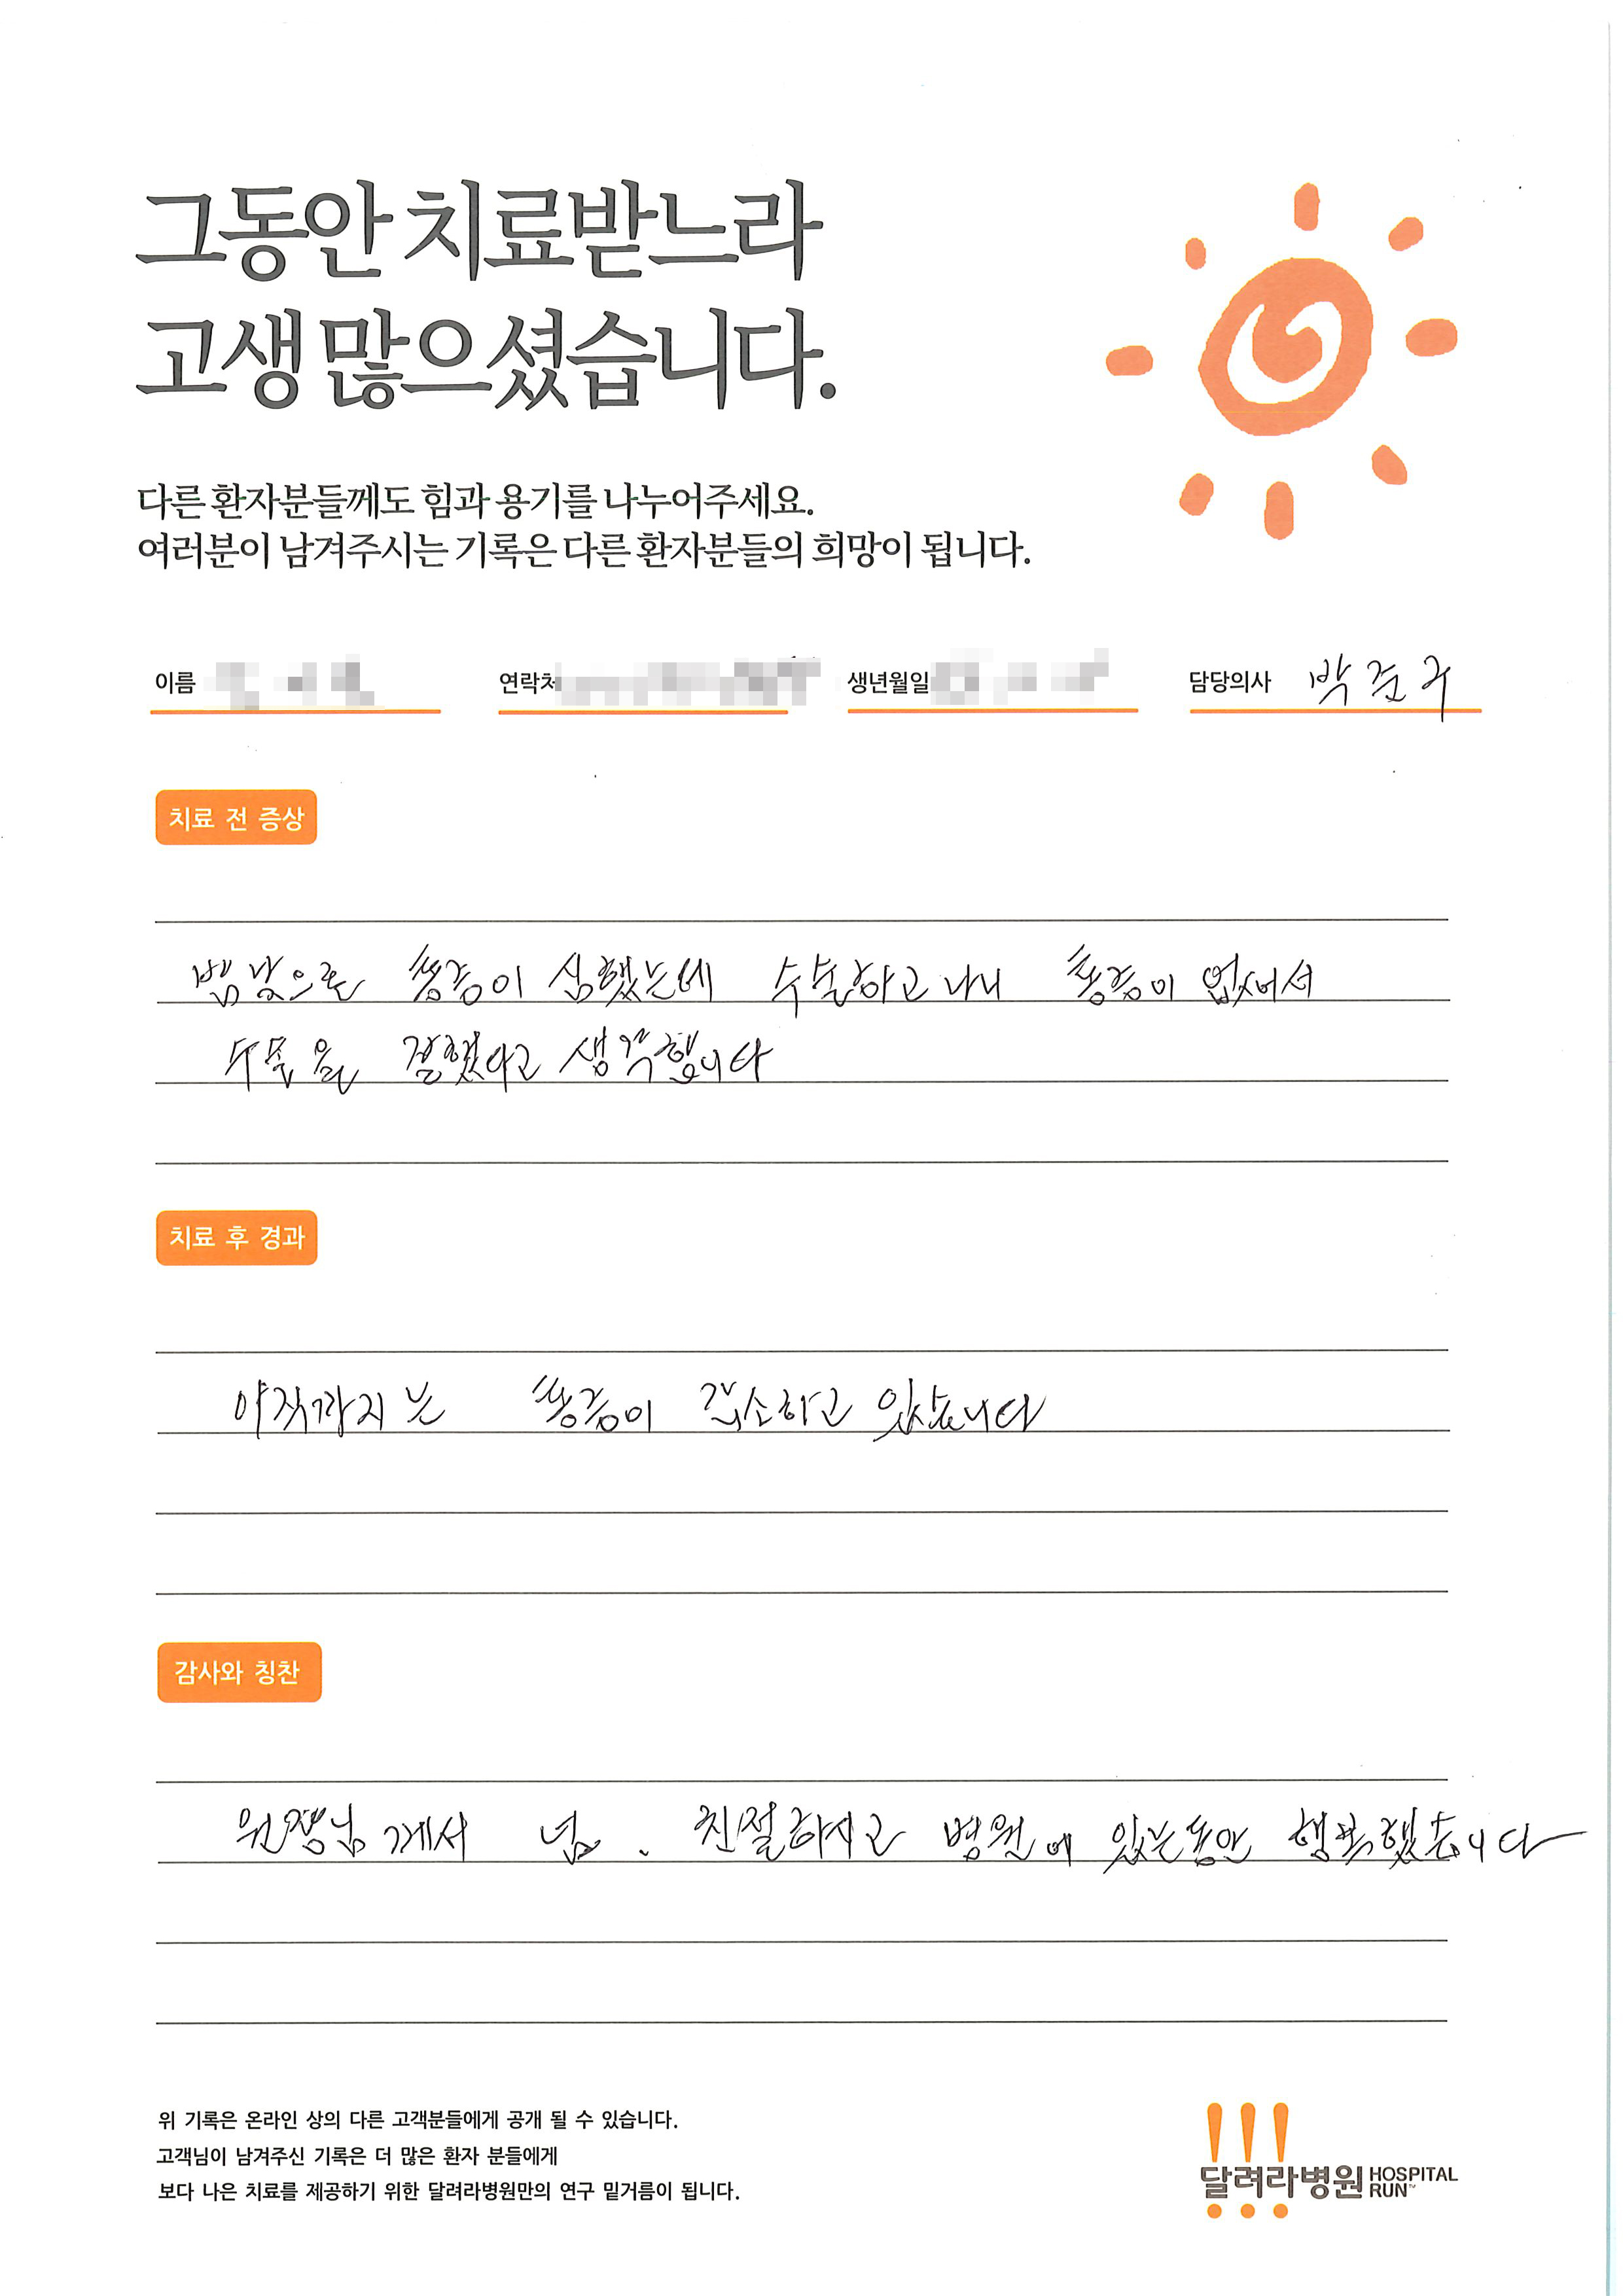 그동안 치료받느라
고생 많으셨습니다.
다른 환자분들께도 힘과 용기를 나누어주세요.
여러분이 남겨주시는 기록은 다른 환자분들의 희망이 됩니다.
이름 연락처 생년월일 담당의사 박준구
치료 전 증상
밤낮으로 통증이 심했는데 수술하고 나니 통증이 없어서
수술을 잘했다고 생각합니다
치료 후 경과
아직까지는 통증이 감소하고 있습니다
감사와 칭찬
원장님께서 넘. 친절하시고 병원에 있는동안 행복했습니다
위 기록은 온라인 상의 다른 고객분들에게 공개 될 수 있습니다.
고객님이 남겨주신 기록은 더 많은 환자 분들에게
보다 나은 치료를 제공하기 위한 달려라병원만의 연구 밑거름이 됩니다.
달려라병원 HOSPITAL RUN™